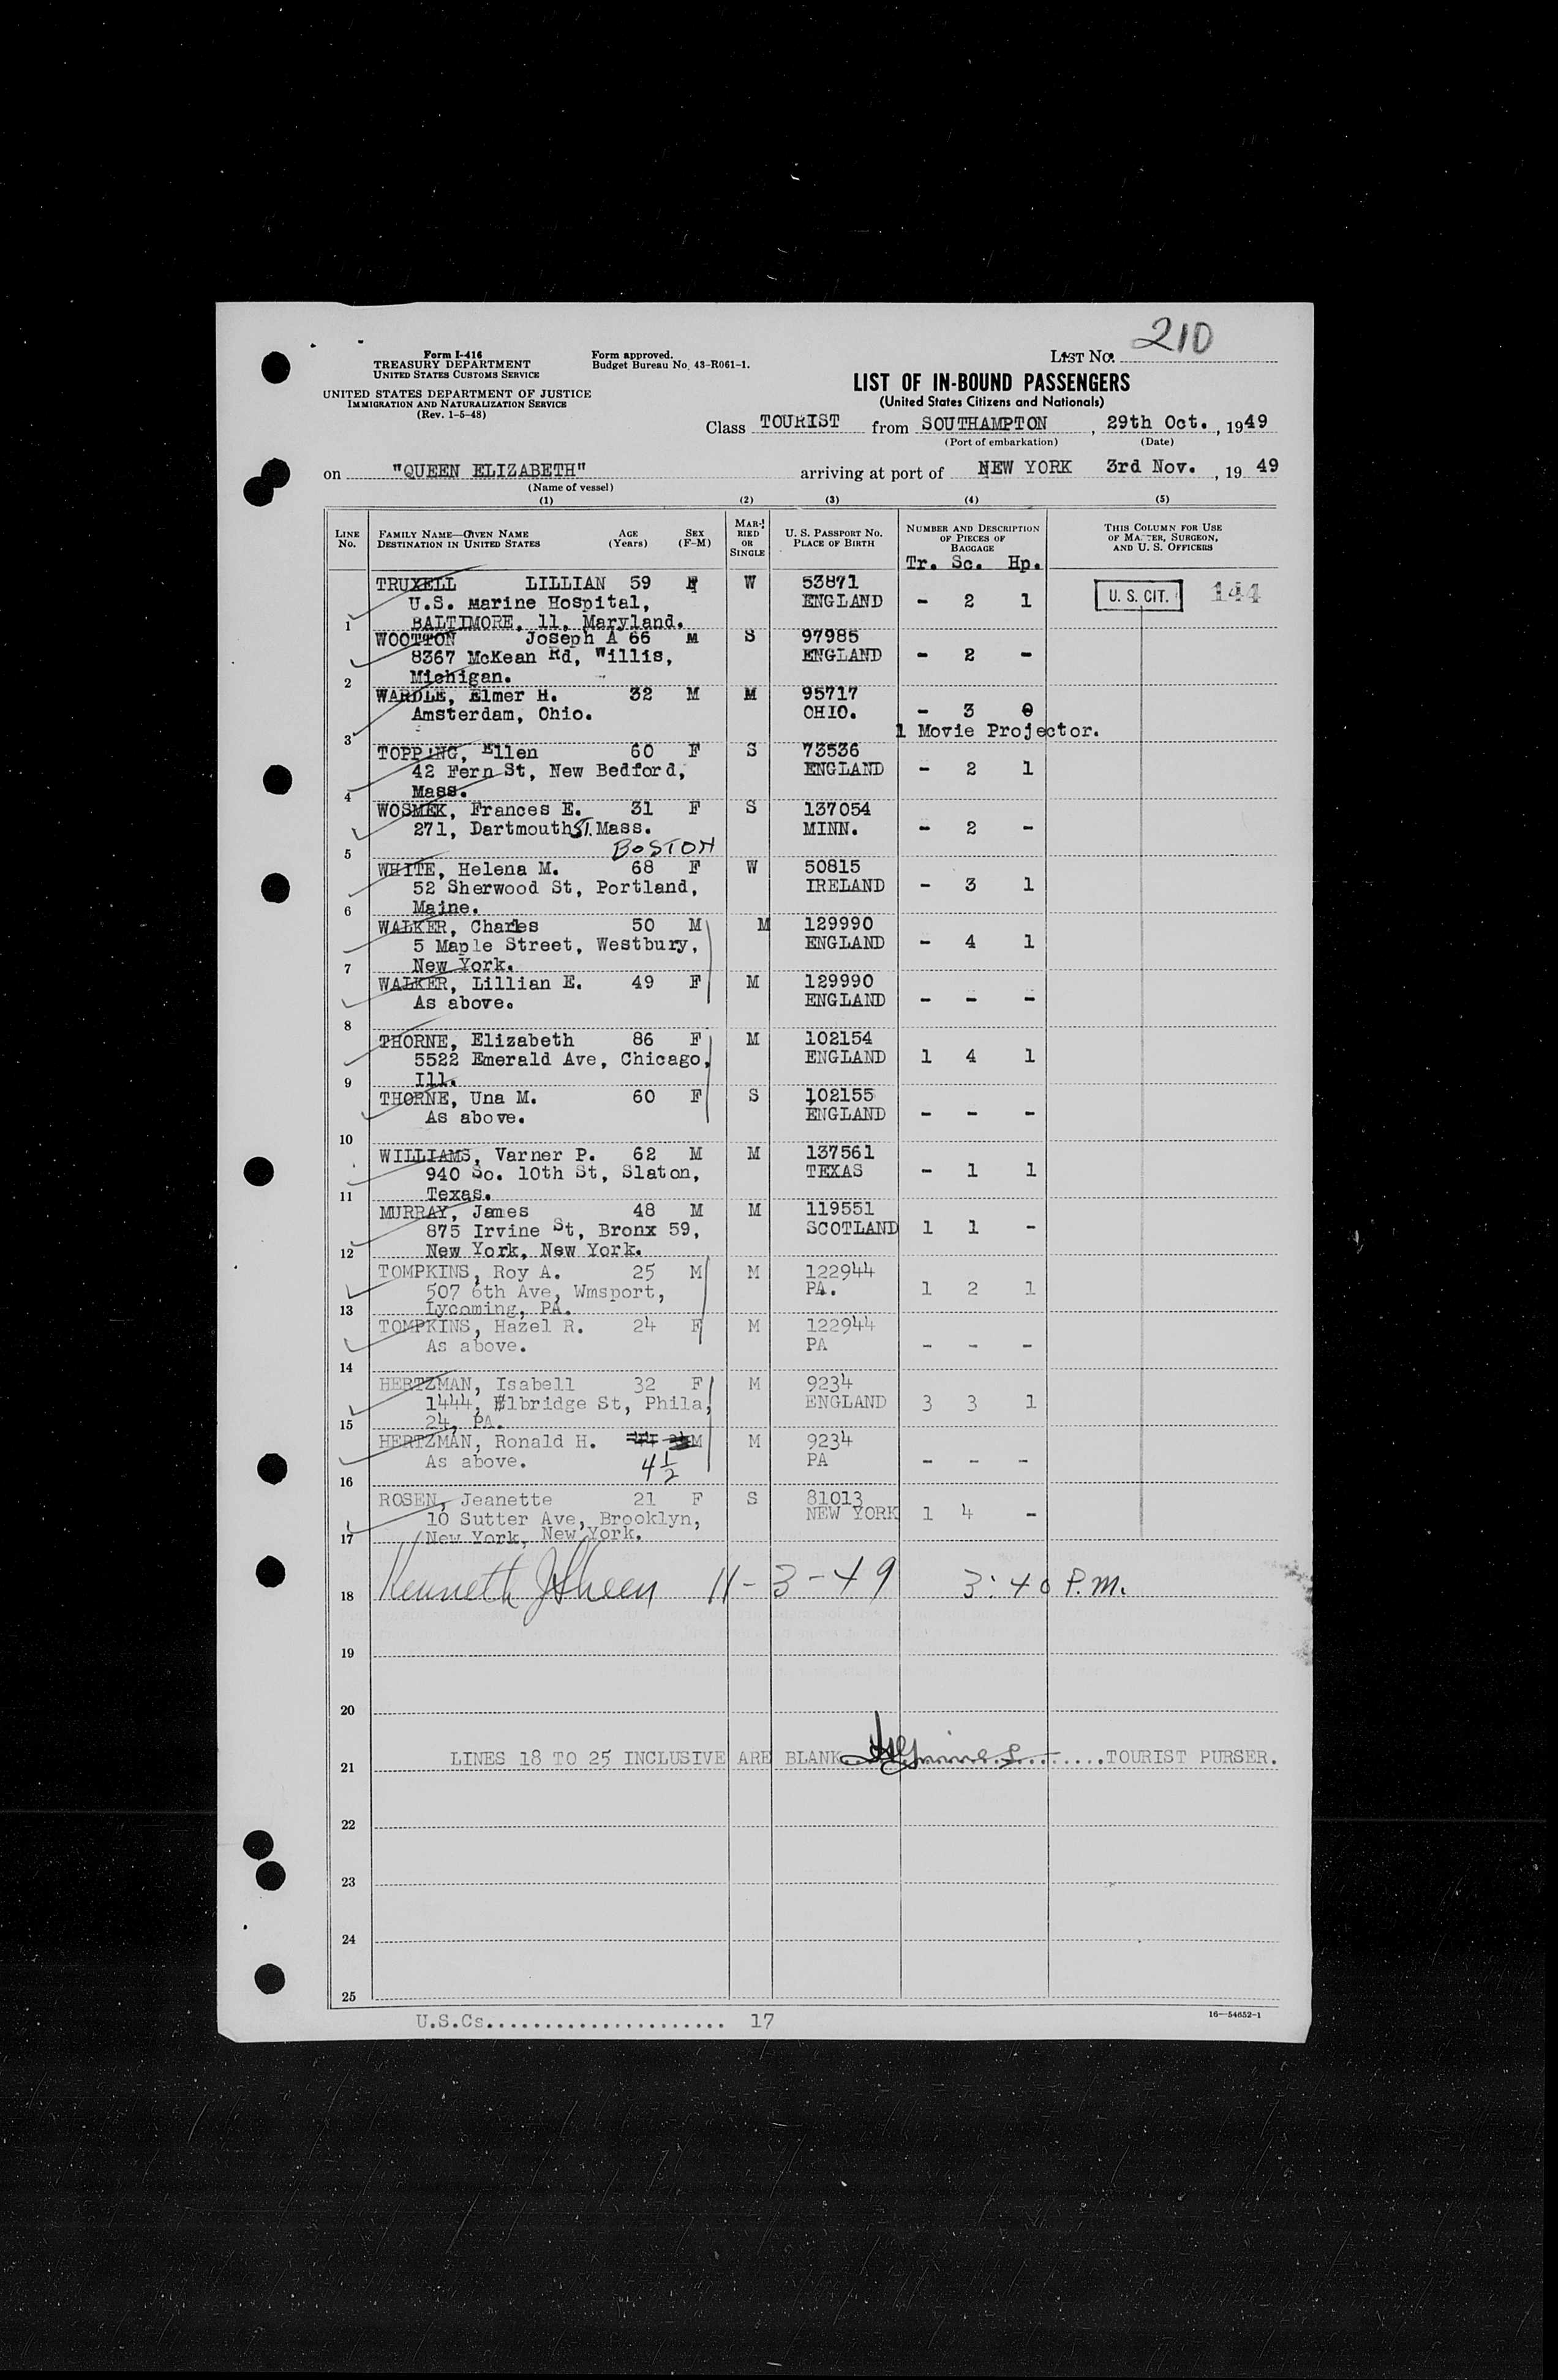 210
Form I-416
TREASURY DEPARTMENT
UNITED STATES CUSTOMS SERVICE
Form approved.
Budget Bureau No. 43-R061-1.
LIST No.
UNITED STATES DEPARTMENT OF JUSTICE
IMMIGRATION AND NATURALIZATION SERVICE
(Rev. 1-5-48)
LIST OF IN-BOUND PASSENGERS
(United States Citizens and Nationals)
Class TOURIST from SOUTHAMPTON, 29th Oct., 1949
(Port of embarkation) (Date)
on "QUEEN ELIZABETH" arriving at port of NEW YORK 3rd Nov., 19 49
(Name of vessel)
(1) (2) (3) (4) (5)
LINE No.
FAMILY NAME—GIVEN NAME
DESTINATION IN UNITED STATES
AGE
(Years)
SEX
(F-M)
MAR-
RIED
OR
SINGLE
U. S. PASSPORT No.
PLACE OF BIRTH
NUMBER AND DESCRIPTION
OF PIECES OF
BAGGAGE
Tr. Sc. Hp.
THIS COLUMN FOR USE
OF MASTER, SURGEON,
AND U. S. OFFICERS
TRUXELL LILLIAN 59 F W 53871
U.S. Marine Hospital, ENGLAND - 2 1 U. S. CIT. 144
1 BALTIMORE, 11, Maryland.
WOOTTON Joseph A 66 M S 97985
8367 McKean Rd, Willis, ENGLAND - 2 -
2 Michigan.
WARDLE, Elmer H. 32 M M 95717
Amsterdam, Ohio. OHIO. - 3 0
3 1 Movie Projector.
TOPPING, Ellen 60 F S 73536
42 Fern St, New Bedford, ENGLAND - 2 1
4 Mass.
WOSMEK, Frances E. 31 F S 137054
271, Dartmouth ST. Mass. MINN. - 2 -
5 BOSTON
WHITE, Helena M. 68 F W 50815
52 Sherwood St, Portland, IRELAND - 3 1
6 Maine.
WALKER, Charles 50 M M 129990
5 Maple Street, Westbury, ENGLAND - 4 1
7 New York.
WALKER, Lillian E. 49 F M 129990
As above. ENGLAND - - -
8
THORNE, Elizabeth 86 F M 102154
5522 Emerald Ave, Chicago, ENGLAND 1 4 1
9 Ill.
THORNE, Una M. 60 F S 102155
As above. ENGLAND - - -
10
WILLIAMS, Varner P. 62 M M 137561
940 So. 10th St, Slaton, TEXAS - 1 1
11 Texas.
MURRAY, James 48 M M 119551
875 Irvine St, Bronx 59, SCOTLAND 1 1 -
12 New York, New York.
TOMPKINS, Roy A. 25 M M 122944
507 6th Ave, Wmsport, PA. 1 2 1
13 Lycoming, PA.
TOMPKINS, Hazel R. 24 F M 122944
As above. PA - - -
14
HERTZMAN, Isabell 32 F M 9234
1444, Elbridge St, Phila, ENGLAND 3 3 1
15 24, PA.
HERTZMAN, Ronald H. M M 9234
As above. 4 1/2 PA - - -
16
ROSEN, Jeanette 21 F S 81013
10 Sutter Ave, Brooklyn, NEW YORK 1 4 -
17 New York, New York.
18 Kenneth J Sheen 11-3-49 3:40 P.M.
19
20
21 LINES 18 TO 25 INCLUSIVE ARE BLANK TOURIST PURSER.
22
23
24
25
U.S.Cs...................... 17
16—54652-1